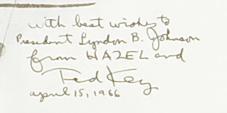 with best wishes to
President Lyndon B. Johnson
from HAZEL and
Ted Key
april 15, 1966